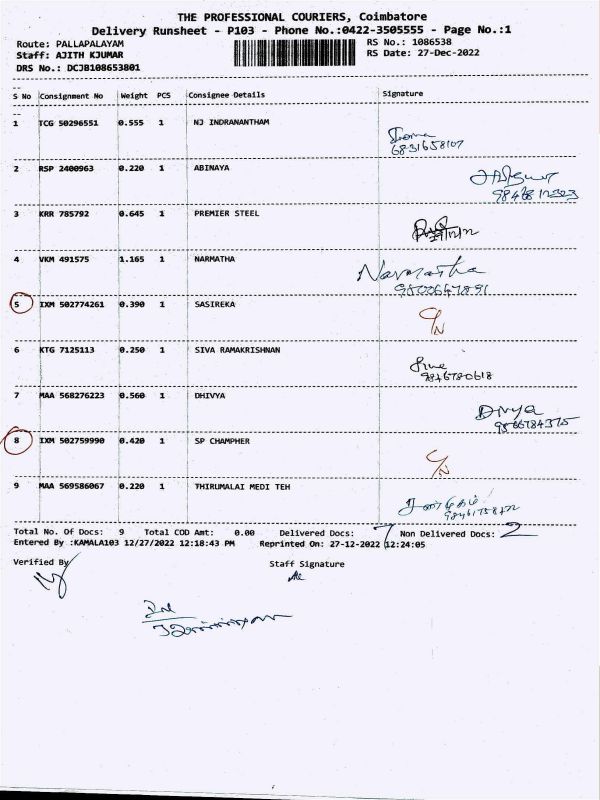 THE PROFESSIONAL COURIERS, Coimbatore
Delivery Runsheet - P103 - Phone No.:0422-3505555 - Page No.:1
Route: PALLAPALAYAM RS No.: 1086538
Staff: AJITH KJUMAR RS Date: 27-Dec-2022
DRS No.: DCJB108653801
S No Consignment No Weight PCS Consignee Details Signature
1 TCG 50296551 0.555 1 NJ INDRANANTHAM
6831658107
2 RSP 2400963 0.220 1 ABINAYA
3 KRR 785792 0.645 1 PREMIER STEEL
4 VKM 491575 1.165 1 NARMATHA Narmatha
9500647891
5 IXM 502774261 0.390 1 SASIREKA C/N
6 KTG 7125113 0.250 1 SIVA RAMAKRISHNAN
9846780618
7 MAA 568276223 0.560 1 DHIVYA Divya
9866784375
8 IXM 502759990 0.420 1 SP CHAMPHER C/N
9 MAA 569586067 0.220 1 THIRUMALAI MEDI TEH
Total No. Of Docs: 9 Total COD Amt: 0.00 Delivered Docs: 7 Non Delivered Docs: 2
Entered By :KAMALA103 12/27/2022 12:18:43 PM Reprinted On: 27-12-2022 12:24:05
Verified By Staff Signature